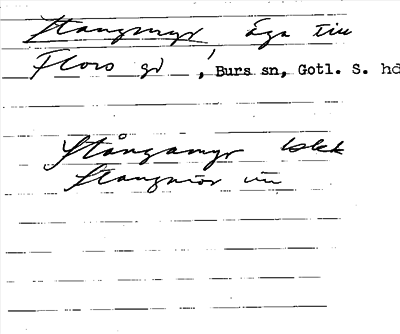 Stangmyr äga till
Flors gd, Burs sn, Gotl. S. hd
Stångamyr
Stangmör